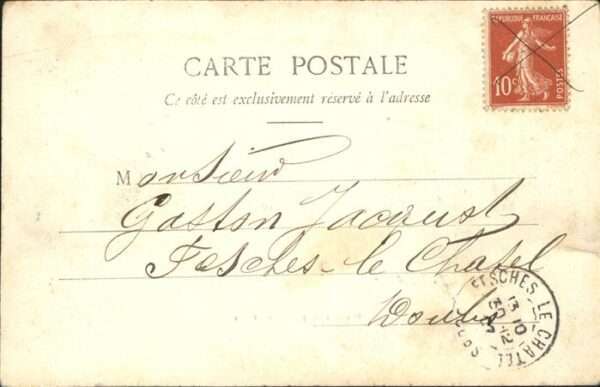 REPUBLIQUE FRANÇAISE
10c
POSTES
CARTE POSTALE
Ce côté est exclusivement réservé à l'adresse
Monsieur
Gaston Jacquot
Fesches-le-Chatel
Doubs
FESCHES LE CHATEL
13 10